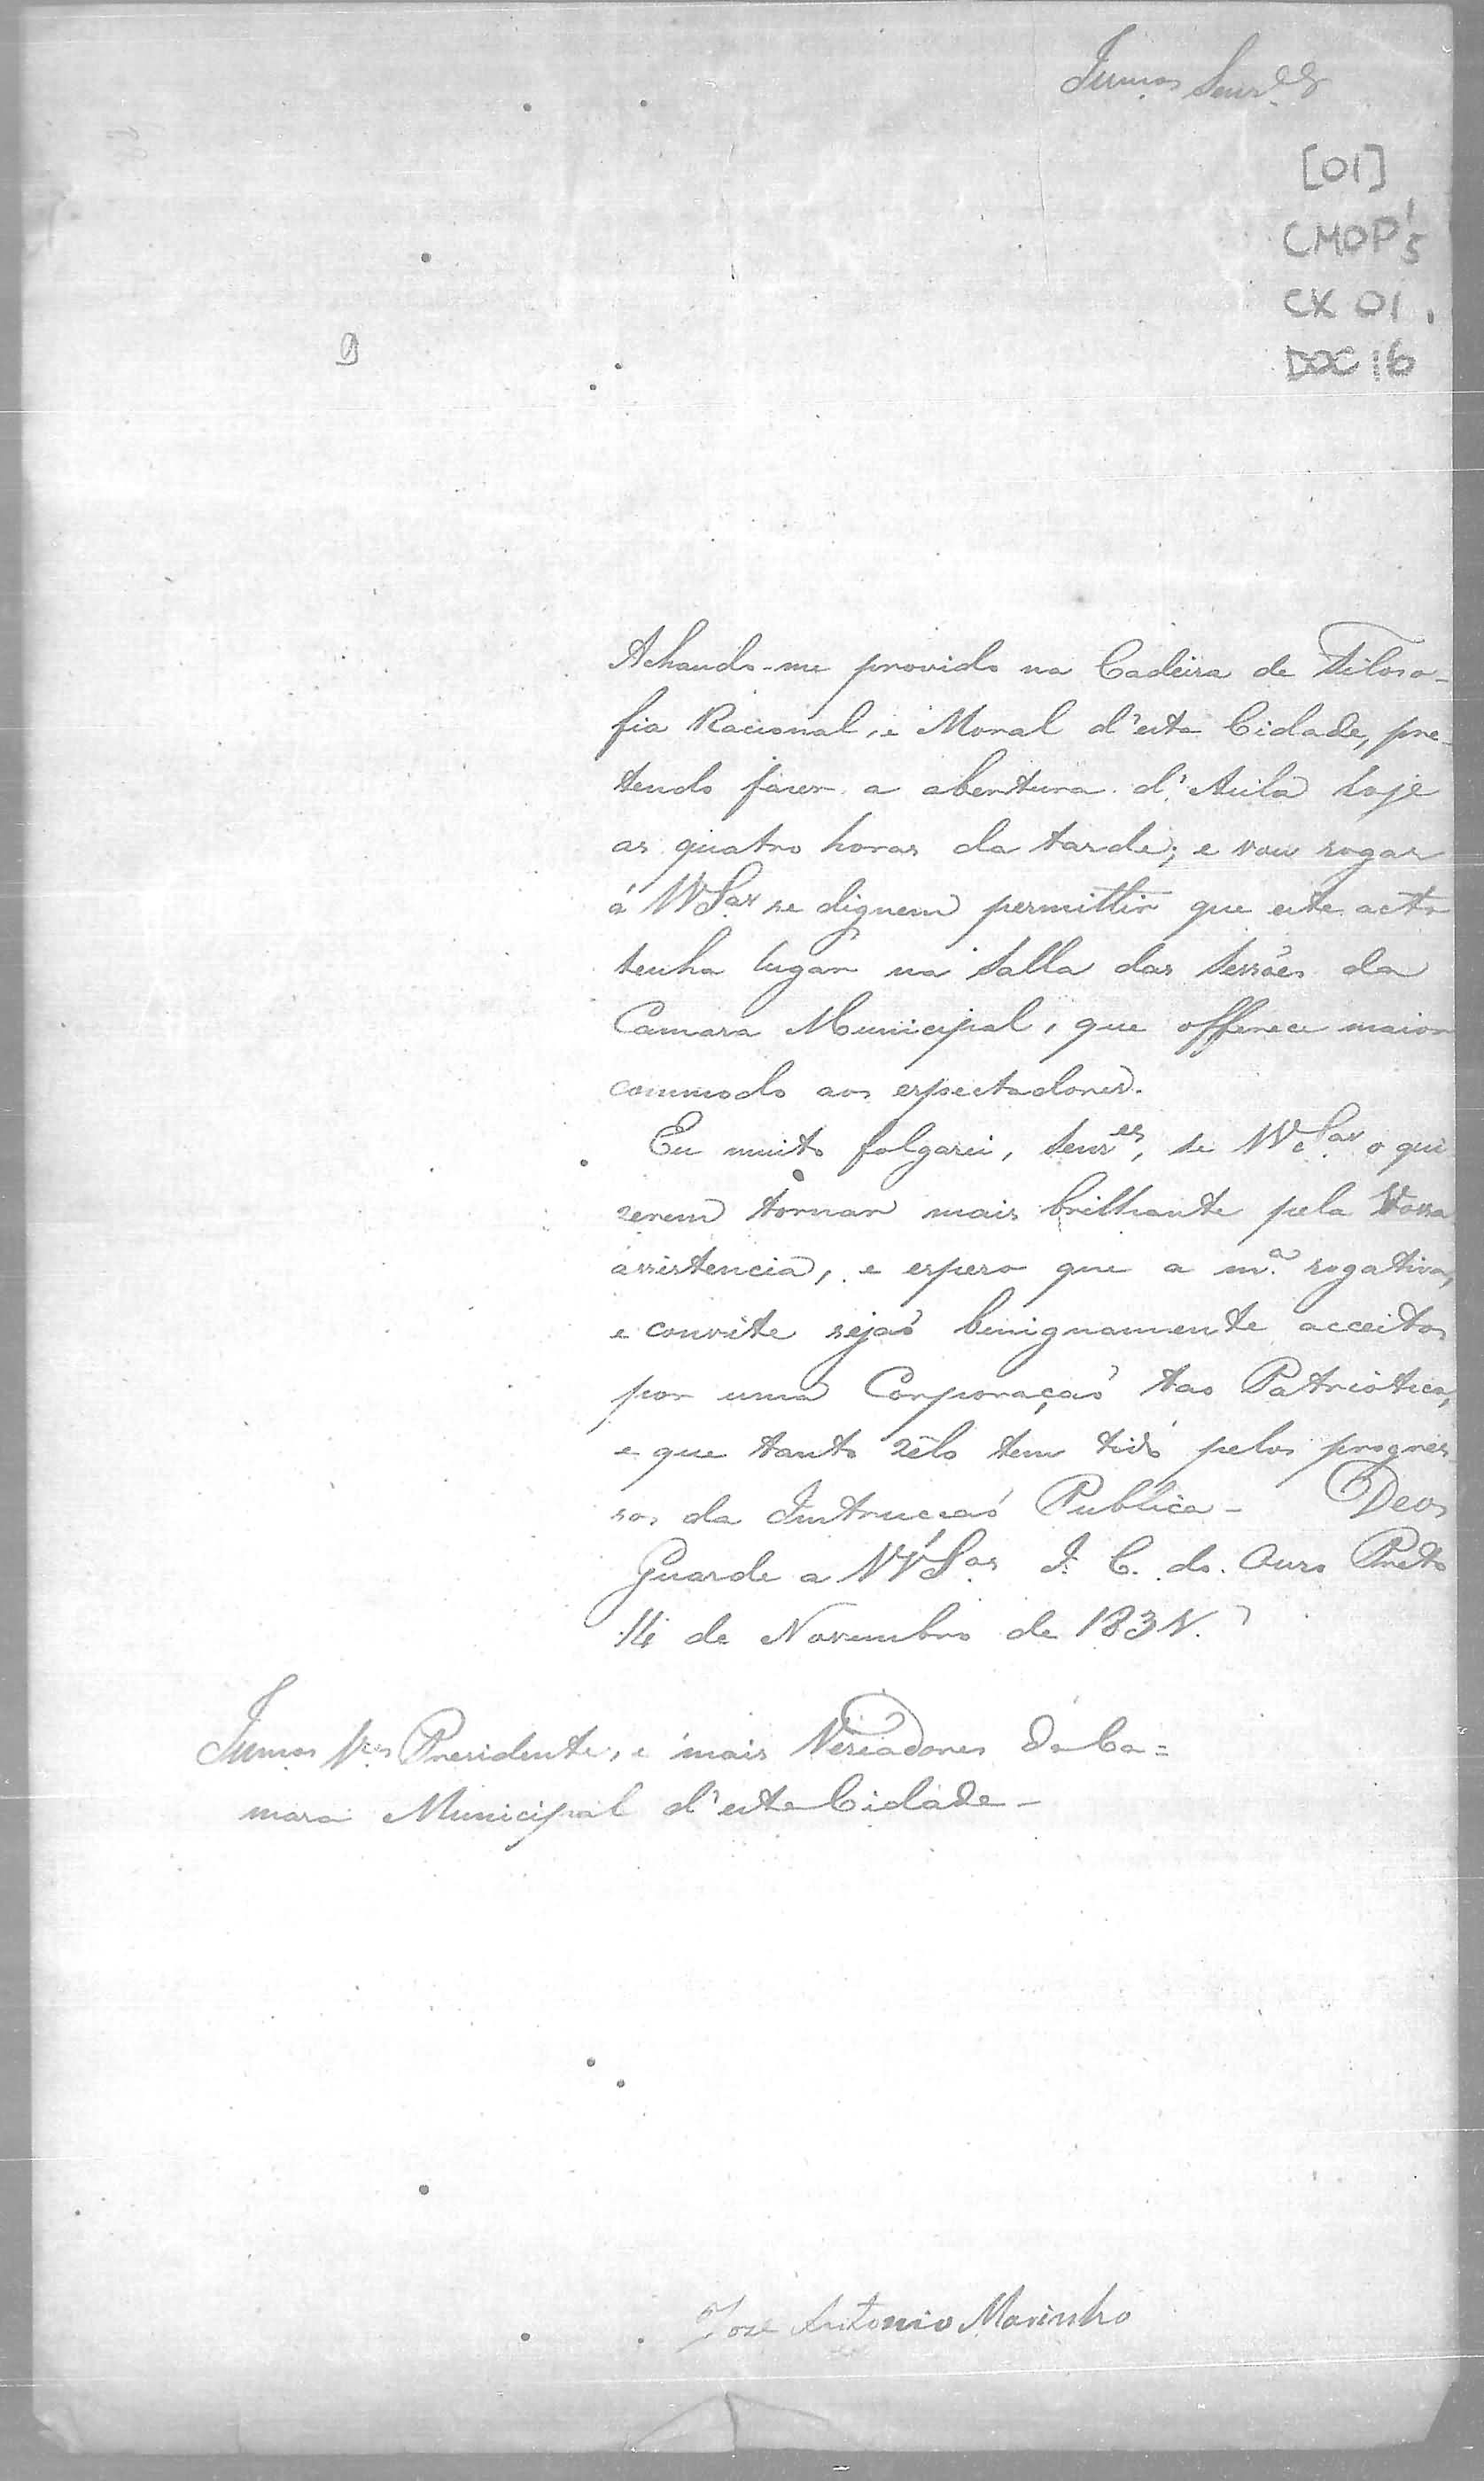 Illmos Senres
[01]
CMOP 1
5
CX 01
DOC 16
Achando-me provido na Cadeira de Filoso-
fia Racional, e Moral d'esta Cidade, pre-
tendo fazer a abertura d'Aula hoje
as quatro horas da tarde; e vou rogar
á VVSas se dignem permittir que este acto
tenha lugar na Salla das Sessões da
Camara Municipal, que offerece maior
commodo aos espectadores.
Eu muito folgarei, Senres, se VVSas o qui
zerem tornar mais brilhante pela Vossa
assistencia, e espero que a ma rogativa,
e convite sejaõ benignamente acceitos
por uma Corporaçaõ tao Patriotica,
e que tanto zêlo tem tido pelos progres
sos da Instrucçaõ Publica - Deos
Guarde a VVSas I. C. do Ouro Preto
14 de Novembro de 183
Illmos Sres Presidente, e mais Vereadores da Ca=
mara Municipal d'esta Cidade -
Joze Antonio Marinho